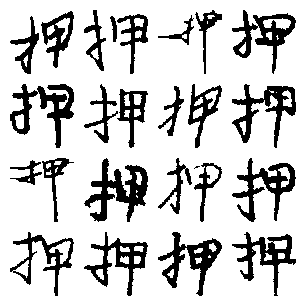 押押押押
押押押押
押押押押
押押押押